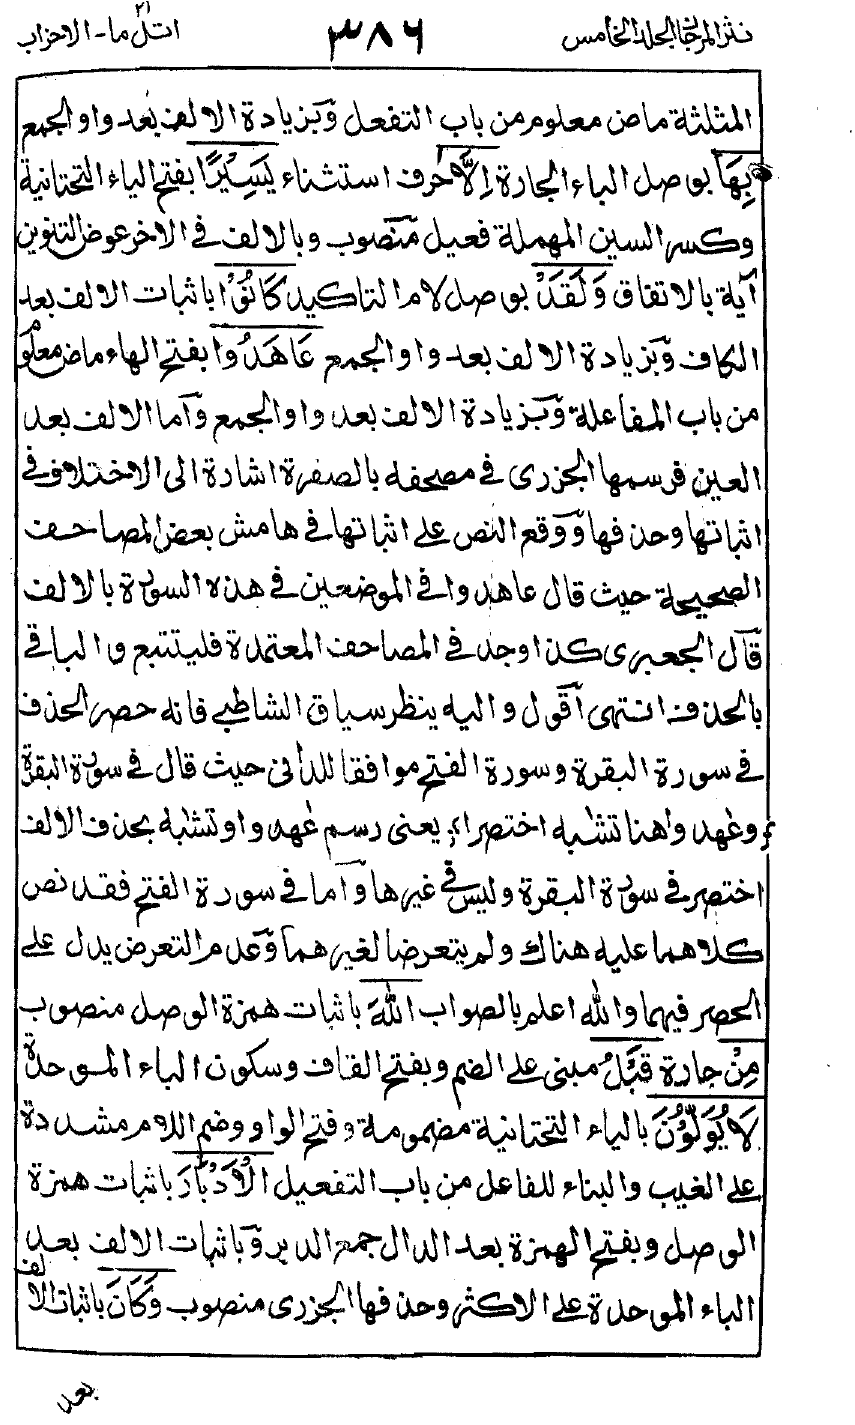 نثر المرجان الجلد الخامس ٣٨٦ اتل ما ٢١ - الاحزاب
المثلثة ماض معلوم من باب التفعل وَبزيادة الالف بعد واو الجمع
بِهَا بوصل الباء الجارة اِلَّا حرف استثناء يَسِيْرًا بفتح الياء التحتانية
وكسر السين المهملة فعيل منصوب وبالالف في الاخر عوض التنوين
آية بالاتفاق وَلَقَدْ بوصل لام التاكيد كَانُوْا باثبات الالف بعد
الكاف وَبزيادة الالف بعد واو الجمع عَاهَدُوا بفتح الهاء ماض معلوم
من باب المفاعلة وَبزيادة الالف بعد واو الجمع وَاما الالف بعد
العين فرسمها الجزرى في مصحفه بالصفرة اشارة الى الاختلاف في
اثباتها وحذفها وَوقع النص على اثباتها في هامش بعض المصاحف
الصحيحة حيث قال عاهدوا في الموضعين في هذه السورة بالالف
قال الجعبرى كذا وجد في المصاحف المعتمدة فليتتبع والباقي
بالحذف انتهى اقول واليه ينظر سياق الشاطبي فانه حصر الحذف
في سورة البقرة وسورة الفتح موافقا للدانى حيث قال في سورة البقرة
ع وعهدوا هنا تشبه اختصرا؛ يعنى رسم عهدوا وتشبه بحذف الالف
اختصر في سورة البقرة وليس في غيرها وَاما في سورة الفتح فقد نص
كلاهما عليه هناك ولم يتعرضا لغيرهما وَعدم التعرض يدل على
الحصر فيهما والله اعلم بالصواب اللهَ باثبات همزة الوصل منصوب
مِنْ جارة قَبْلُ مبنى على الضم وبفتح القاف وسكون الباء الموحدة
لَا يُوَلُّوْنَ بالياء التحتانية مضمومة وفتح الواو وضم اللام مشددة
على الغيب والبناء للفاعل من باب التفعيل الْاَدْبَارَ باثبات همزة
الوصل وبفتح الهمزة بعد الدال جمع الدبر وَباثبات الالف بعد
الباء الموحدة على الاكثر وحذفها الجزرى منصوب وَكَانَ باثبات الالف
بعد